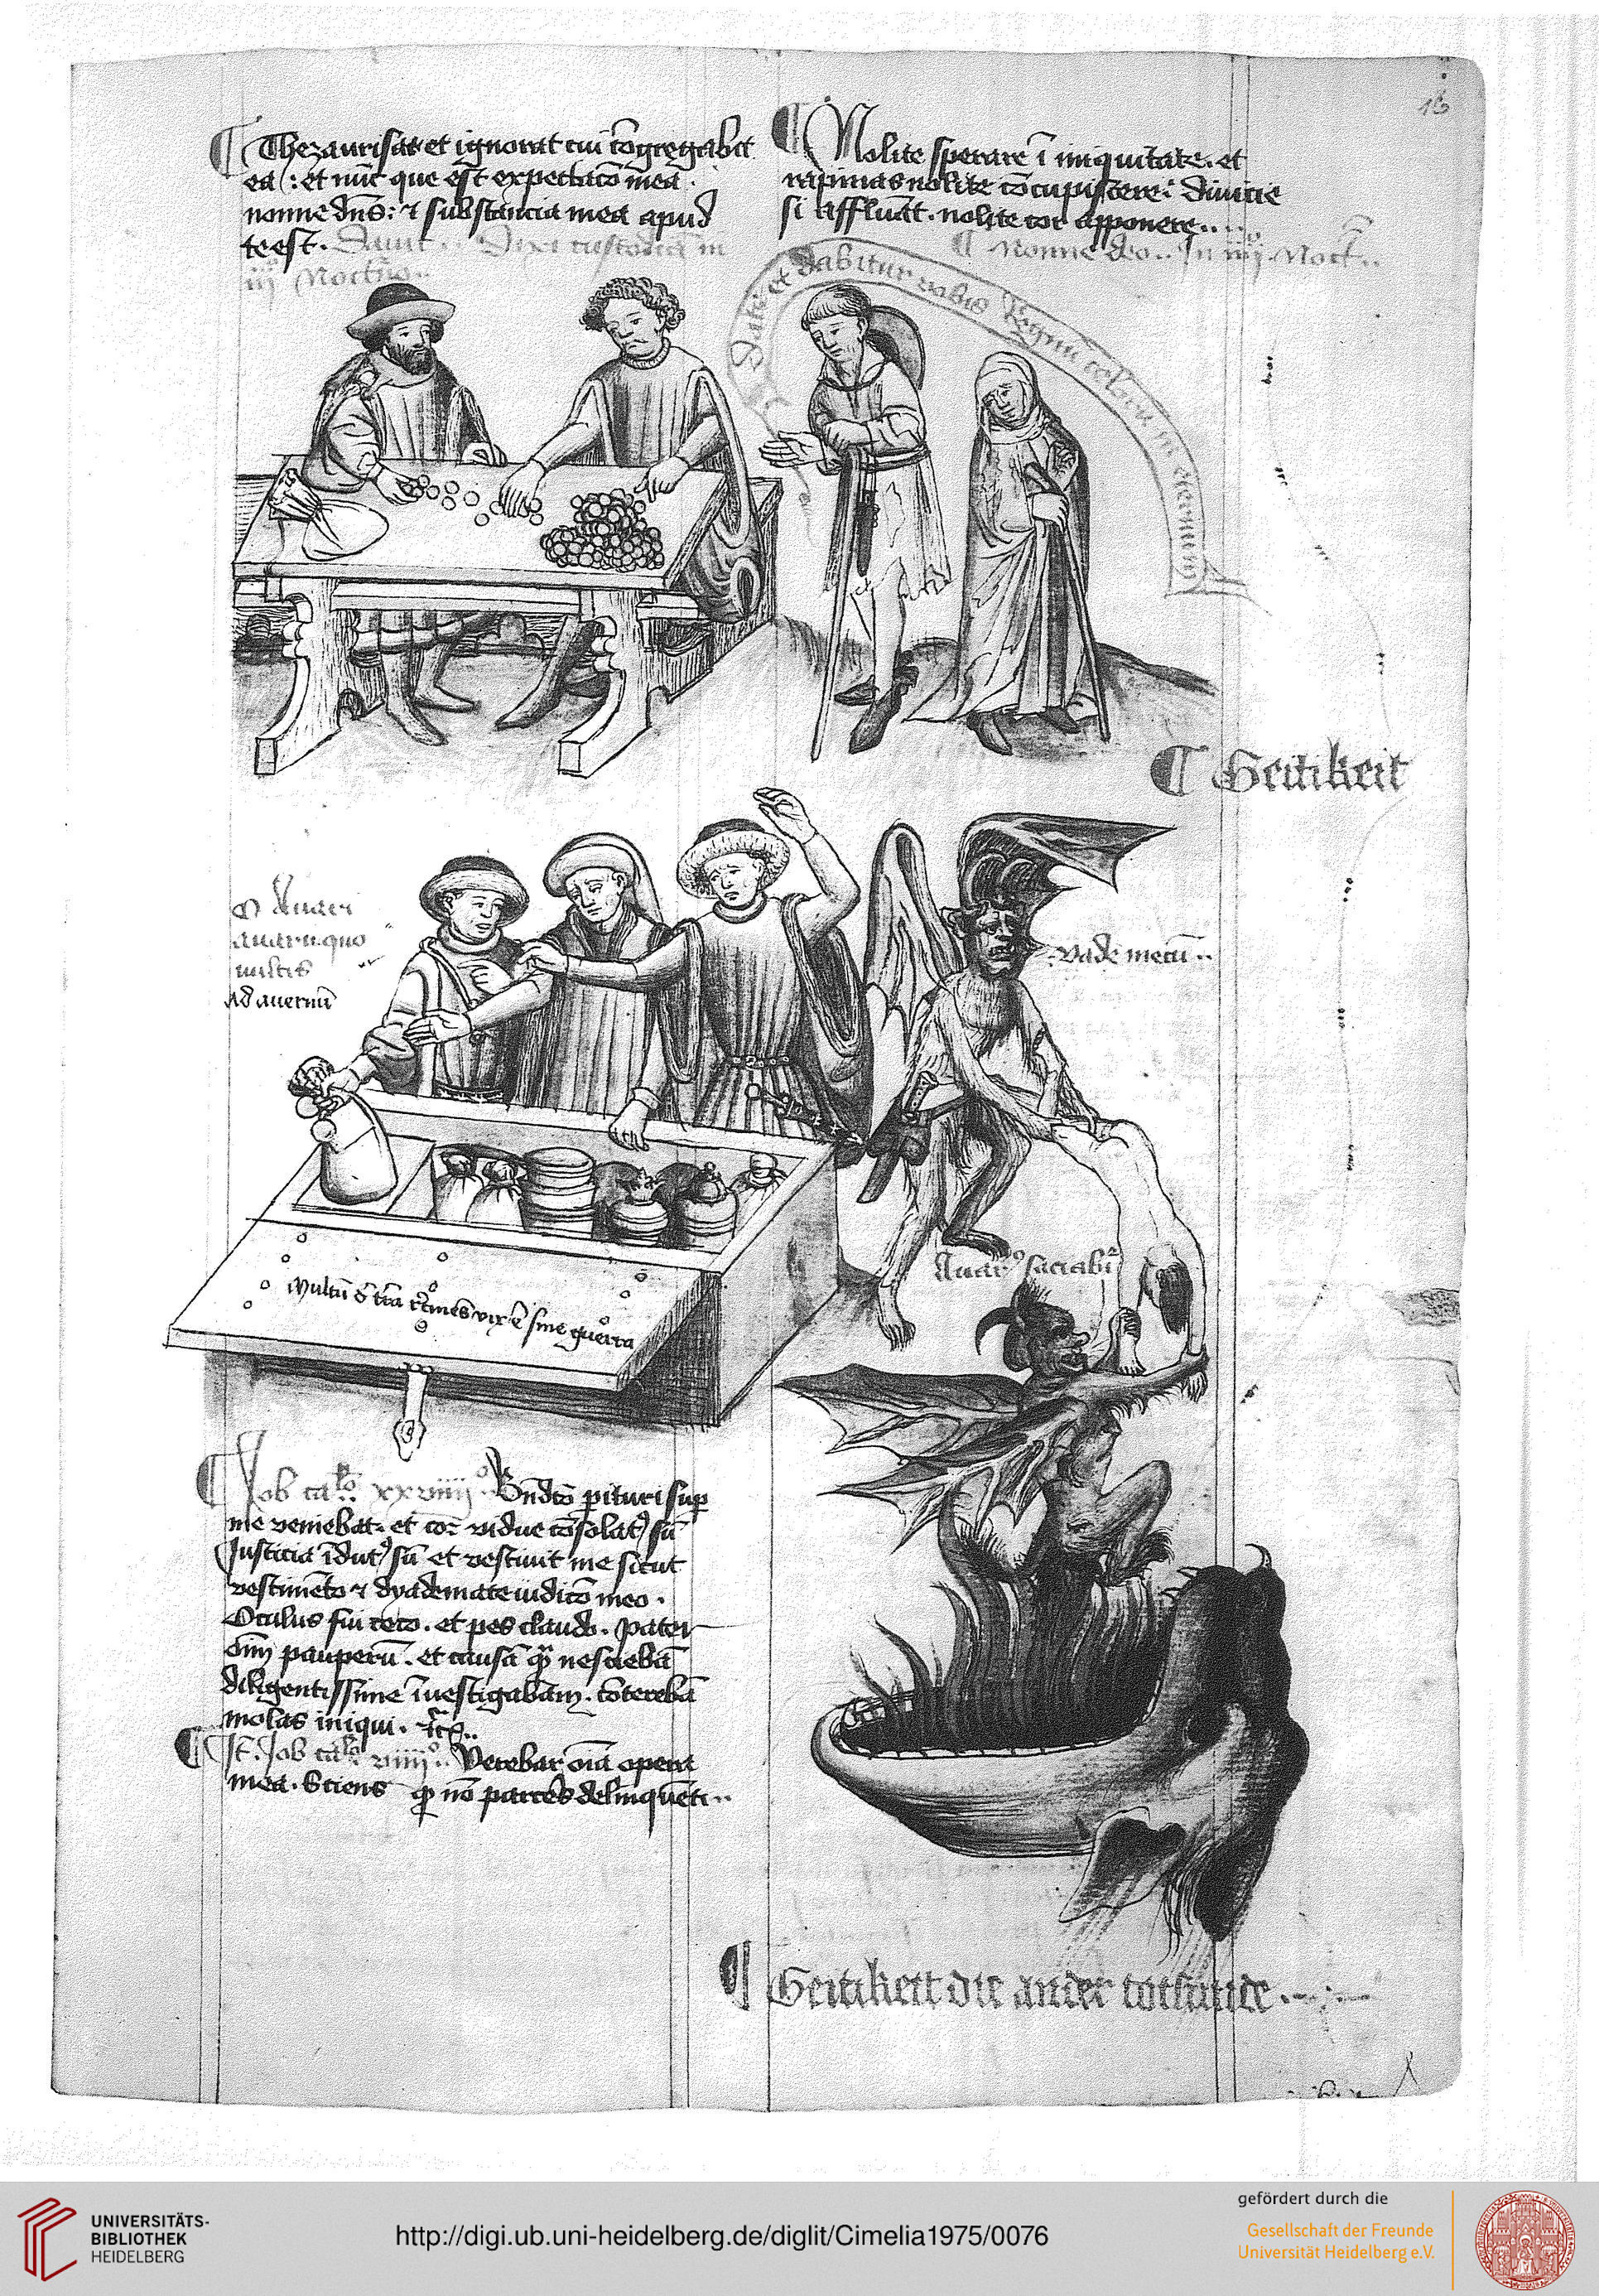 16
Thezaurisat et ignorat cui cōgregabit
ea : et nūc que est expectacō mea .
nonne dn̄s : ⁊ substancia mea apud
te est . Dauit . . Dixi custodiā in
iijº Nocturno ..
Nolite sperare ī iniquitate . et
rapinas nolite cōcupiscere : diuicie
si affluāt . nolite cor apponere ..
Nonne deo .. In iiijº Noct̄ ..
Date et dabitur vobis Regnū celorū in eternum
Geitikeit
O Auari
auaru. quo
ultis
Ad auernū
vade mecū ..
Auarº saciabr̄
Multū d' tr̄a vix ē sine guerra
Job caº .. xxviiiiº .. Bn̄dcō pituri sup
me veniebat . et cor vidue cōsolatꝰ sū
Justicia īdutꝰ sū et vestiuit me sicut
vestimēto ⁊ dyademate iudicō meo .
Oculus fui ceco . et pes claudo . Pater
erā pauperū . et causā qm̄ nesciebā
diligentissime īuestigabam . cōterebā
molas iniqui . ⁊c ..
Jt̄. Job caº viiiiº .. Verebar oīa opera
mea . Sciens qr nō parceres delinquēti ..
Geitikeit die ander totsunde . .
UNIVERSITÄTS-
BIBLIOTHEK
HEIDELBERG
http://digi.ub.uni-heidelberg.de/diglit/Cimelia1975/0076
gefördert durch die
Gesellschaft der Freunde
Universität Heidelberg e.V.